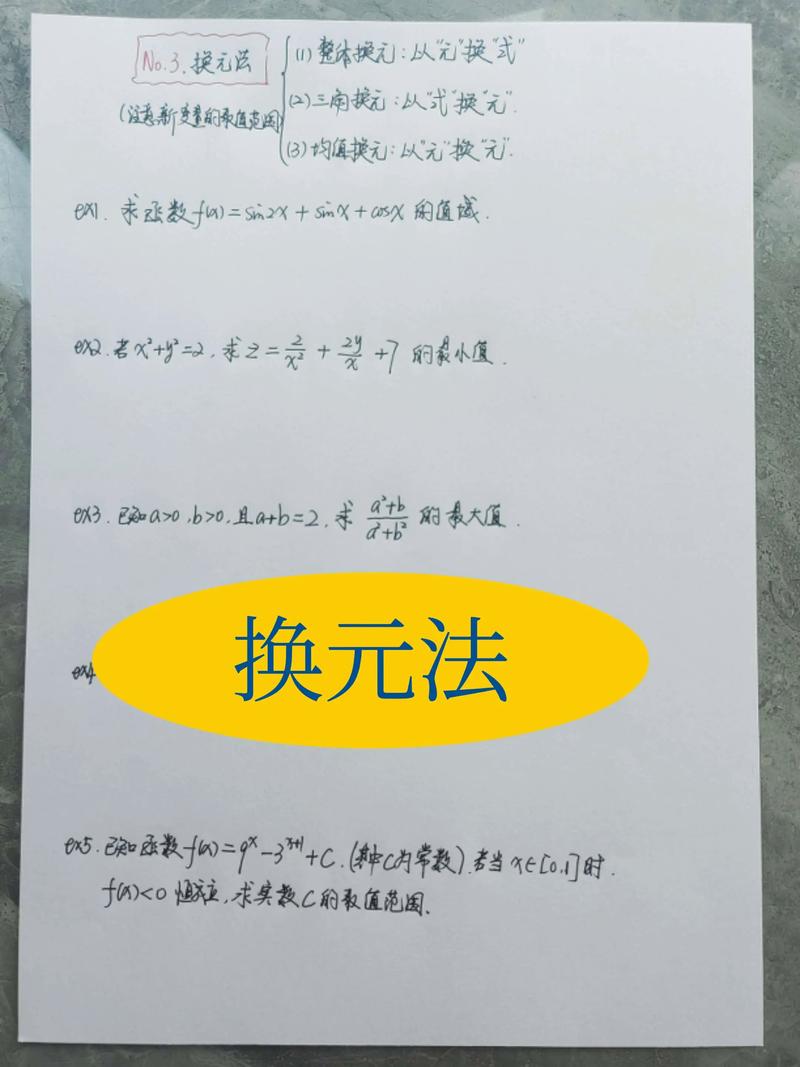 No.3. 换元法
(注意新变量的取值范围)
(1) 整体换元：以“元”换“式”
(2) 三角换元：以“式”换“元”.
(3) 均值换元：以“元”换“元”.
ex1. 求函数f(x)=sin2x+sinx+cosx 的值域.
ex2. 若x²+y²=2, 求 z=2/x²+2y/x+7 的最小值.
ex3. 已知a>0,b>0,且a+b=2, 求 (a²+b)/(a²+b²) 的最大值.
ex4
换元法
ex5. 已知函数f(x)=9ˣ-3ˣ⁺¹+C.(其中C为常数).若当x∈[0,1]时.
f(x)<0 恒成立, 求实数C的取值范围.